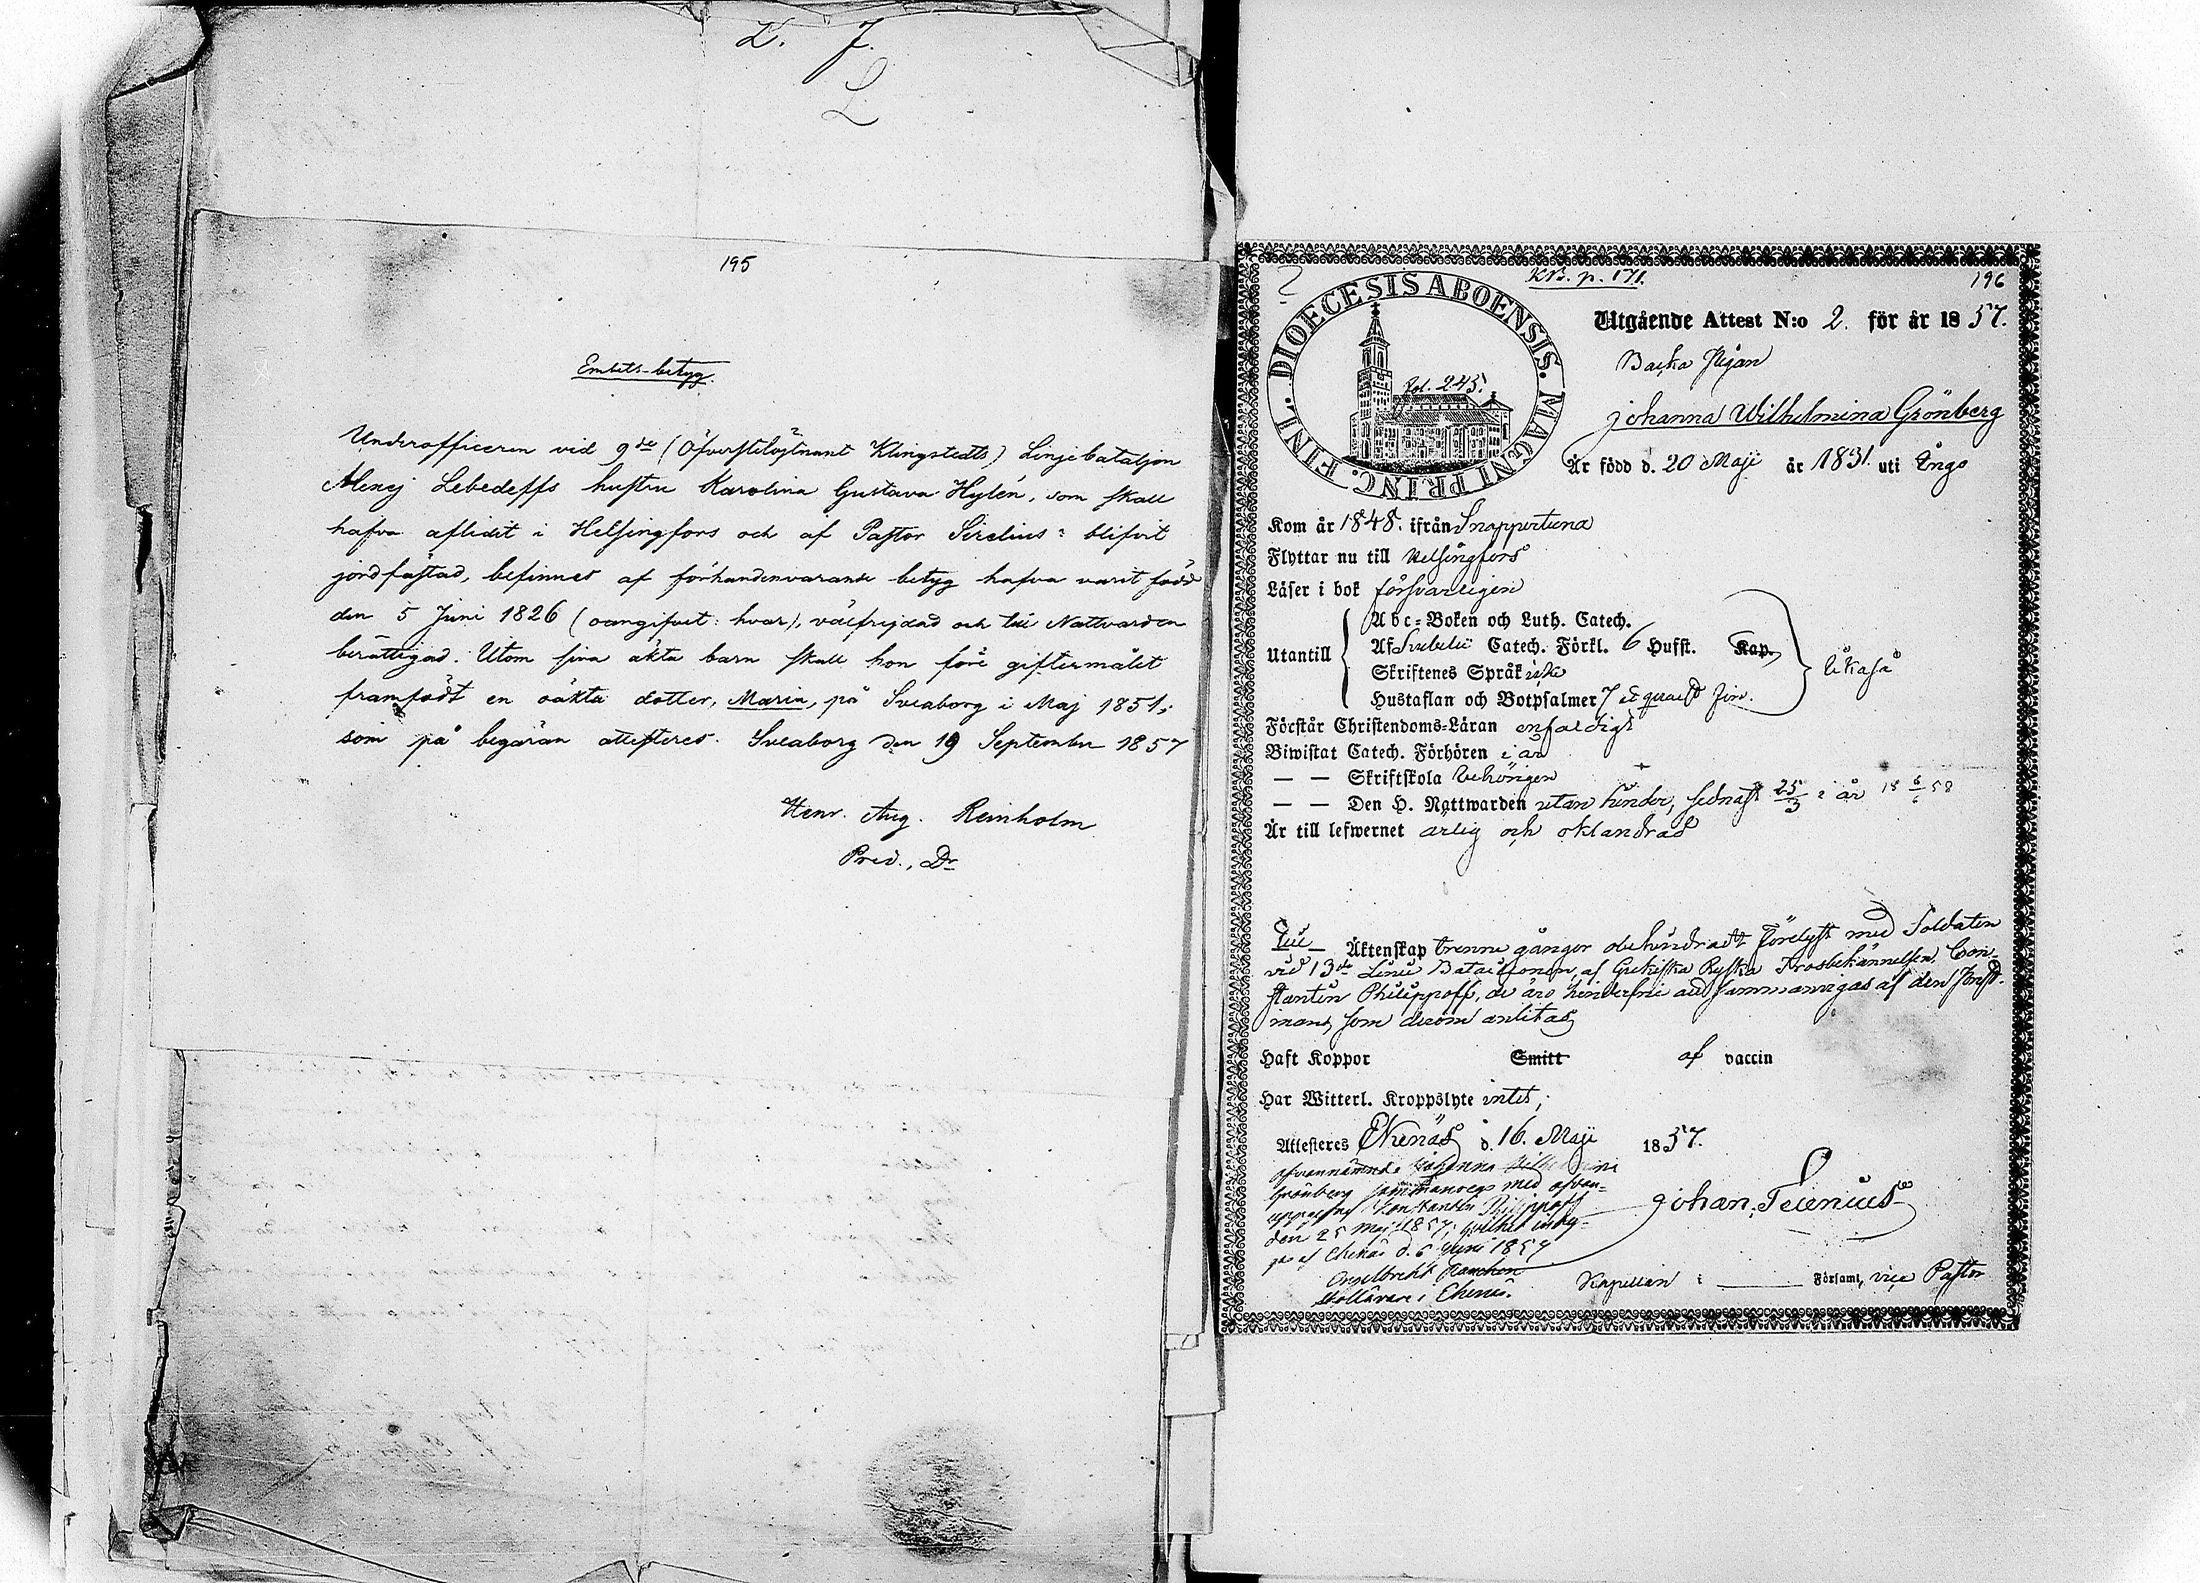 L. J.
L.
195
Embets-betyg.
Underofficeren vid 9de (Öfverstelöjtnant Klingstedts) Linjebataljon
Alexej Lebedeffs hustru Karolina Gustava Hylén, som skall
hafva aflidit i Helsingfors och af Pastor Sirelius blifvit
jordfästad, befinnes af förhandenvarande betyg hafva varit född
den 5 Juni 1826 (oangifvet hvar), välfrejdad och till Nattvarden
berättigad. Utom sina äkta barn skall hon före giftermålet
framfödt en oäkta dotter, Maria, på Sveaborg i Maj 1851;
som på begäran attesteres. Sveaborg den 19 September 1857
Henr. Aug. Reinholm
Pred., Dr
KB. p. 171.
196
DIOECESIS ABOENSIS. MAGNI PRINC. FINL.
Fol. 243.
Utgående Attest N:o 2. för år 1857.
Backa Pigan
Johanna Wilhelmina Grönberg
Är född d. 20 Maji år 1831. uti Ingo
Kom år 1848. ifrån Snappertuna
Flyttar nu till Helsingfors
Läser i bok försvarligen
Utantill
Abc-Boken och Luth. Catech.
Af Svebelii Catech. Förkl. 6 Hufst. Kap.
Skriftenes Språk
Hustaflan och Botpsalmer 7
likaså
Förstår Christendoms-Läran enfaldigt
Biwistat Catech. Förhören i år
— — Skriftskola behörigen
— — Den H. Nattwarden utan hinder, sednast 25/3 i år 18 6/6 58
Är till lefwernet ärlig och oklandrad
Till Äktenskap trenne gångor obehindradt förelyst med Soldaten
vid 13de Linie Bataillonen, af Grekiska Ryska Trosbekännelsen, Con-
stantin Philippoff, de äro hinderfrie att sammanvigas af den Prest-
man, som derom anlitas
Haft Koppor Smitt af vaccin
Har Witterl. Kroppslyte intet,
Attesteres Ekenäs d. 16. Maji 1857.
ofvannämnde Johanna Wilhelmina
Grönberg sammanvegs med ofvan-
Konstantin Philippoff
den 25 Maj 1857, hvilket
Ekenäs d. 6 Juni 1857
Johan
i Ekenäs.
Kapellan i Församl, vice Pastor